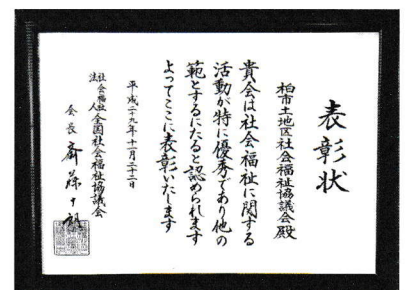 表彰状
柏市土地区社会福祉協議会殿
貴会は社会福祉に関する
活動が特に優秀であり他の
範とするにたると認められます
よってここに表彰いたします
平成二十九年十一月二十二日
社会福祉法人全国社会福祉協議会
会長 斎藤十朗